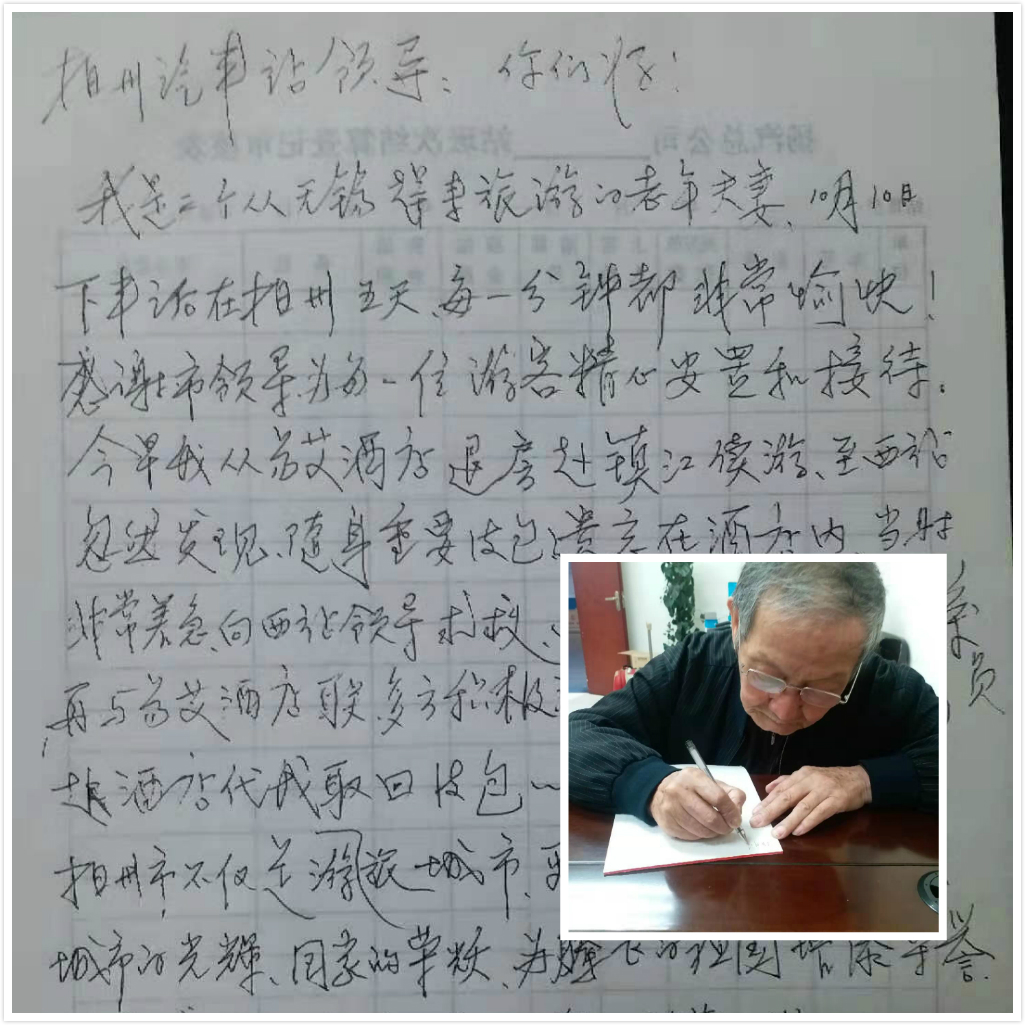 扬州汽车站领导：你们好！
扬汽总公司 站班次结算登记审核表
我是二个从无锡 车旅游的老年夫妻、10月10日
下车站在扬州五天、每一分钟都非常愉快！
感谢市领导为每一位游客精心安置和接待。
今早我从 艾酒店退房赴镇江续游、至西站
忽然发现、随身重要皮包遗忘在酒店内、当时
非常着急、向西站领导求救、
再与 艾酒店联 多方积极 员
赴酒店代我取回皮包
扬州市不仅是游旅城市、
城市的光辉、国家的荣 、为腾飞的祖国增添 誉